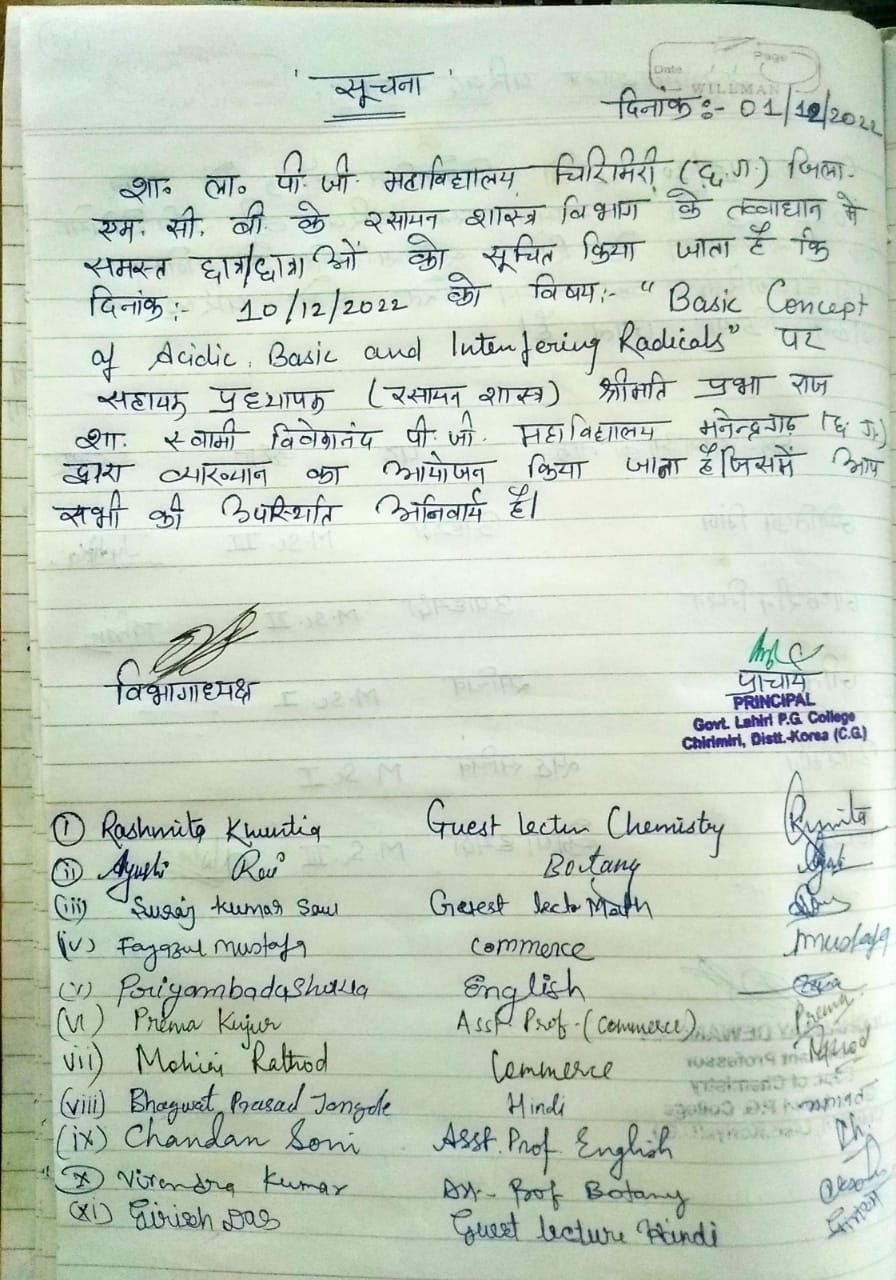 Date
Page
WILLMAN
' सूचना '
दिनांक :- 01/12/2022
शा॰ ला॰ पी॰ जी॰ महाविद्यालय चिरिमिरी (छ.ग.) जिला-
एम. सी. बी. के रसायन शास्त्र विभाग के तत्वाधान मे
समस्त छात्र/छात्राओं को सूचित किया जाता है कि
दिनांक :- 10/12/2022 को विषय :- " Basic Concept
of Acidic, Basic and Interfering Radicals" पर
सहायक प्रध्यापक (रसायन शास्त्र) श्रीमति प्रभा राज
शा. स्वामी विवेकानंद पी. जी. महाविद्यालय मनेन्द्रगढ़ (छ. ग.)
द्वारा व्याख्यान का आयोजन किया जाता है। जिसमें आप
सभी की उपस्थिति अनिवार्य है।
विभागाध्यक्ष
प्राचार्य
PRINCIPAL
Govt. Lahiri P.G. College
Chirimiri, Distt.-Korea (C.G.)
(i) Rashmita Khuntia Guest lectur Chemistry
(ii) Ayushi Rai Botany
(iii) Suraj kumar Saw Guest lectr Math
(iv) Fayazul mustafa Commerce mustafa
(v) Poriyambada Shukla English
(VI) Prema Kujur Asst. Prof. (Commerce) Prema
vii) Mohini Rathod Commerce
(viii) Bhagwat Prasad Jangde Hindi
(ix) Chandan Soni Asst. Prof English Ch.
(x) Virendra Kumar Ast. Prof Botany
(xi) Girish Das Guest lecture Hindi